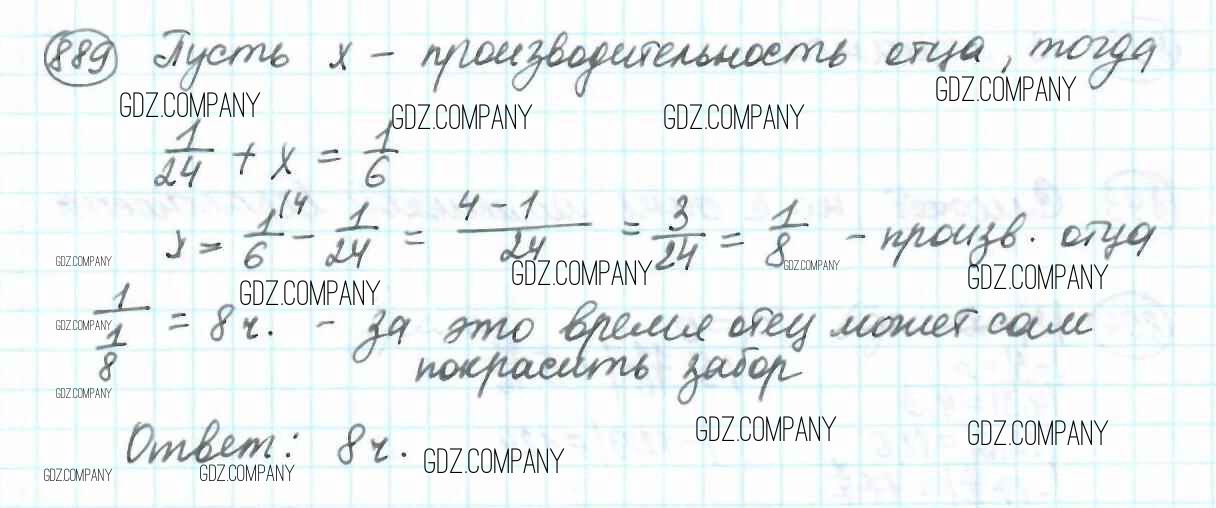 889 Пусть x – производительность отца, тогда
GDZ.COMPANY GDZ.COMPANY GDZ.COMPANY GDZ.COMPANY
1/24 + x = 1/6
x = 1/6 \4 – 1/24 = (4 – 1)/24 = 3/24 = 1/8 – произв. отца
GDZ.COMPANY GDZ.COMPANY GDZ.COMPANY GDZ.COMPANY GDZ.COMPANY
1/(1/8) = 8 ч. – за это время отец может сам
GDZ.COMPANY
покрасить забор
GDZ.COMPANY
Ответ: 8 ч.
GDZ.COMPANY GDZ.COMPANY
GDZ.COMPANY GDZ.COMPANY GDZ.COMPANY